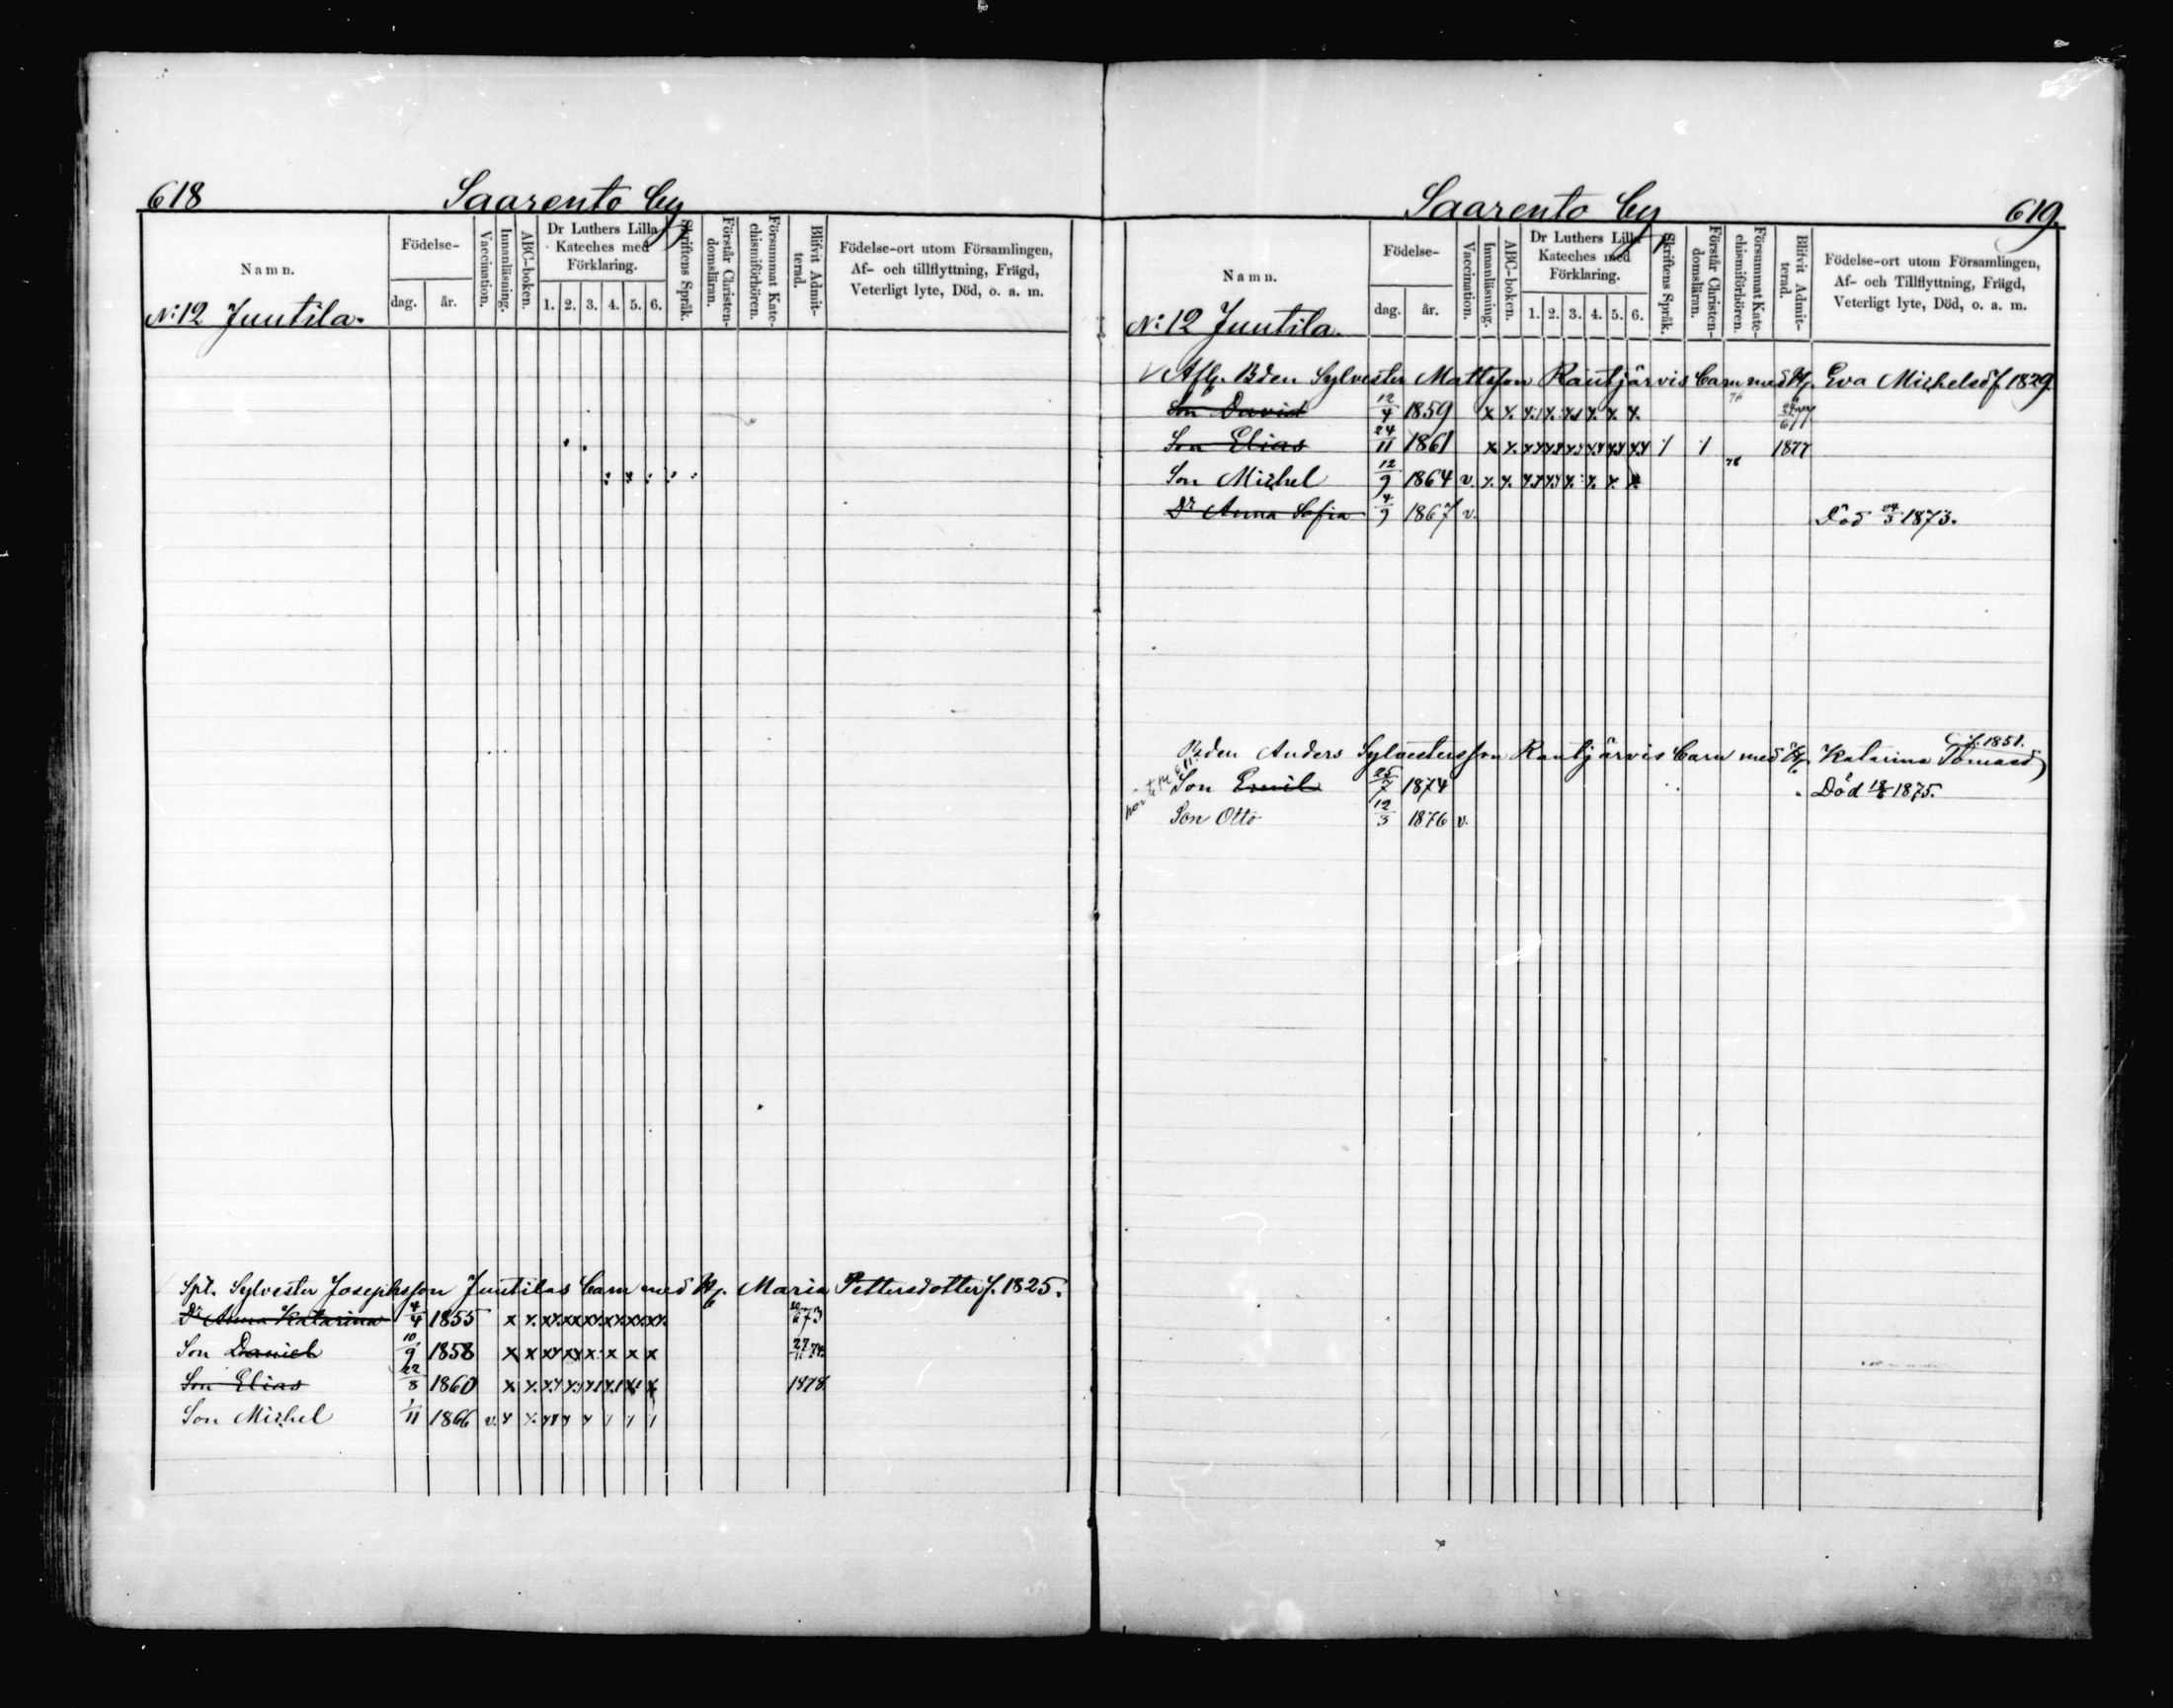 618 Saarento by
Namn.
Födelse-
dag. år.
Vaccination.
Innanläsning.
ABC-boken.
Dr Luthers Lilla
Kateches med
Förklaring.
1. 2. 3. 4. 5. 6.
Skriftens Språk.
Förstår Christen-
domsläran.
Försummat Kate-
chismiförhören.
Blifvit Admit-
terad.
Födelse-ort utom Församlingen,
Af- och tillflyttning, Frägd,
Veterligt lyte, Död, o. a. m.
N:12 Juutila.
Spl. Sylvester Josephsson Juutilas barn med H. Maria Pettersdotter f. 1825.
Dr Anna Katarina 4/4 1855
Son Daniel 10/9 1858
Son Elias 22/8 1860 1878
Son Michel 1/11 1866 v.
Saarento by 619.
Namn.
Födelse-
dag. år.
Vaccination.
Innanläsning.
ABC-boken.
Dr Luthers Lilla
Kateches med
Förklaring.
1. 2. 3. 4. 5. 6.
Skriftens Språk.
Förstår Christen-
domsläran.
Försummat Kate-
chismiförhören.
Blifvit Admit-
terad.
Födelse-ort utom Församlingen,
Af- och Tillflyttning, Frägd,
Veterligt lyte, Död, o. a. m.
N:12 Juutila.
Afl. Bden Sylvester Mattsson Rautjärvis barn med H. Eva Michelsd f. 1829
Son David 12/4 1859
Son Elias 24/11 1861 1877
Son Michel 12/9 1864 v.
Dr Anna Sofia 4/9 1867 v. Död 1873.
f. 1851.
Bden Anders Sylvestersson Rautjärvis barn med H. Katarina Tomasd
Son Emil 25/7 1874 Död 1875.
Son Otto 12/3 1876 v.